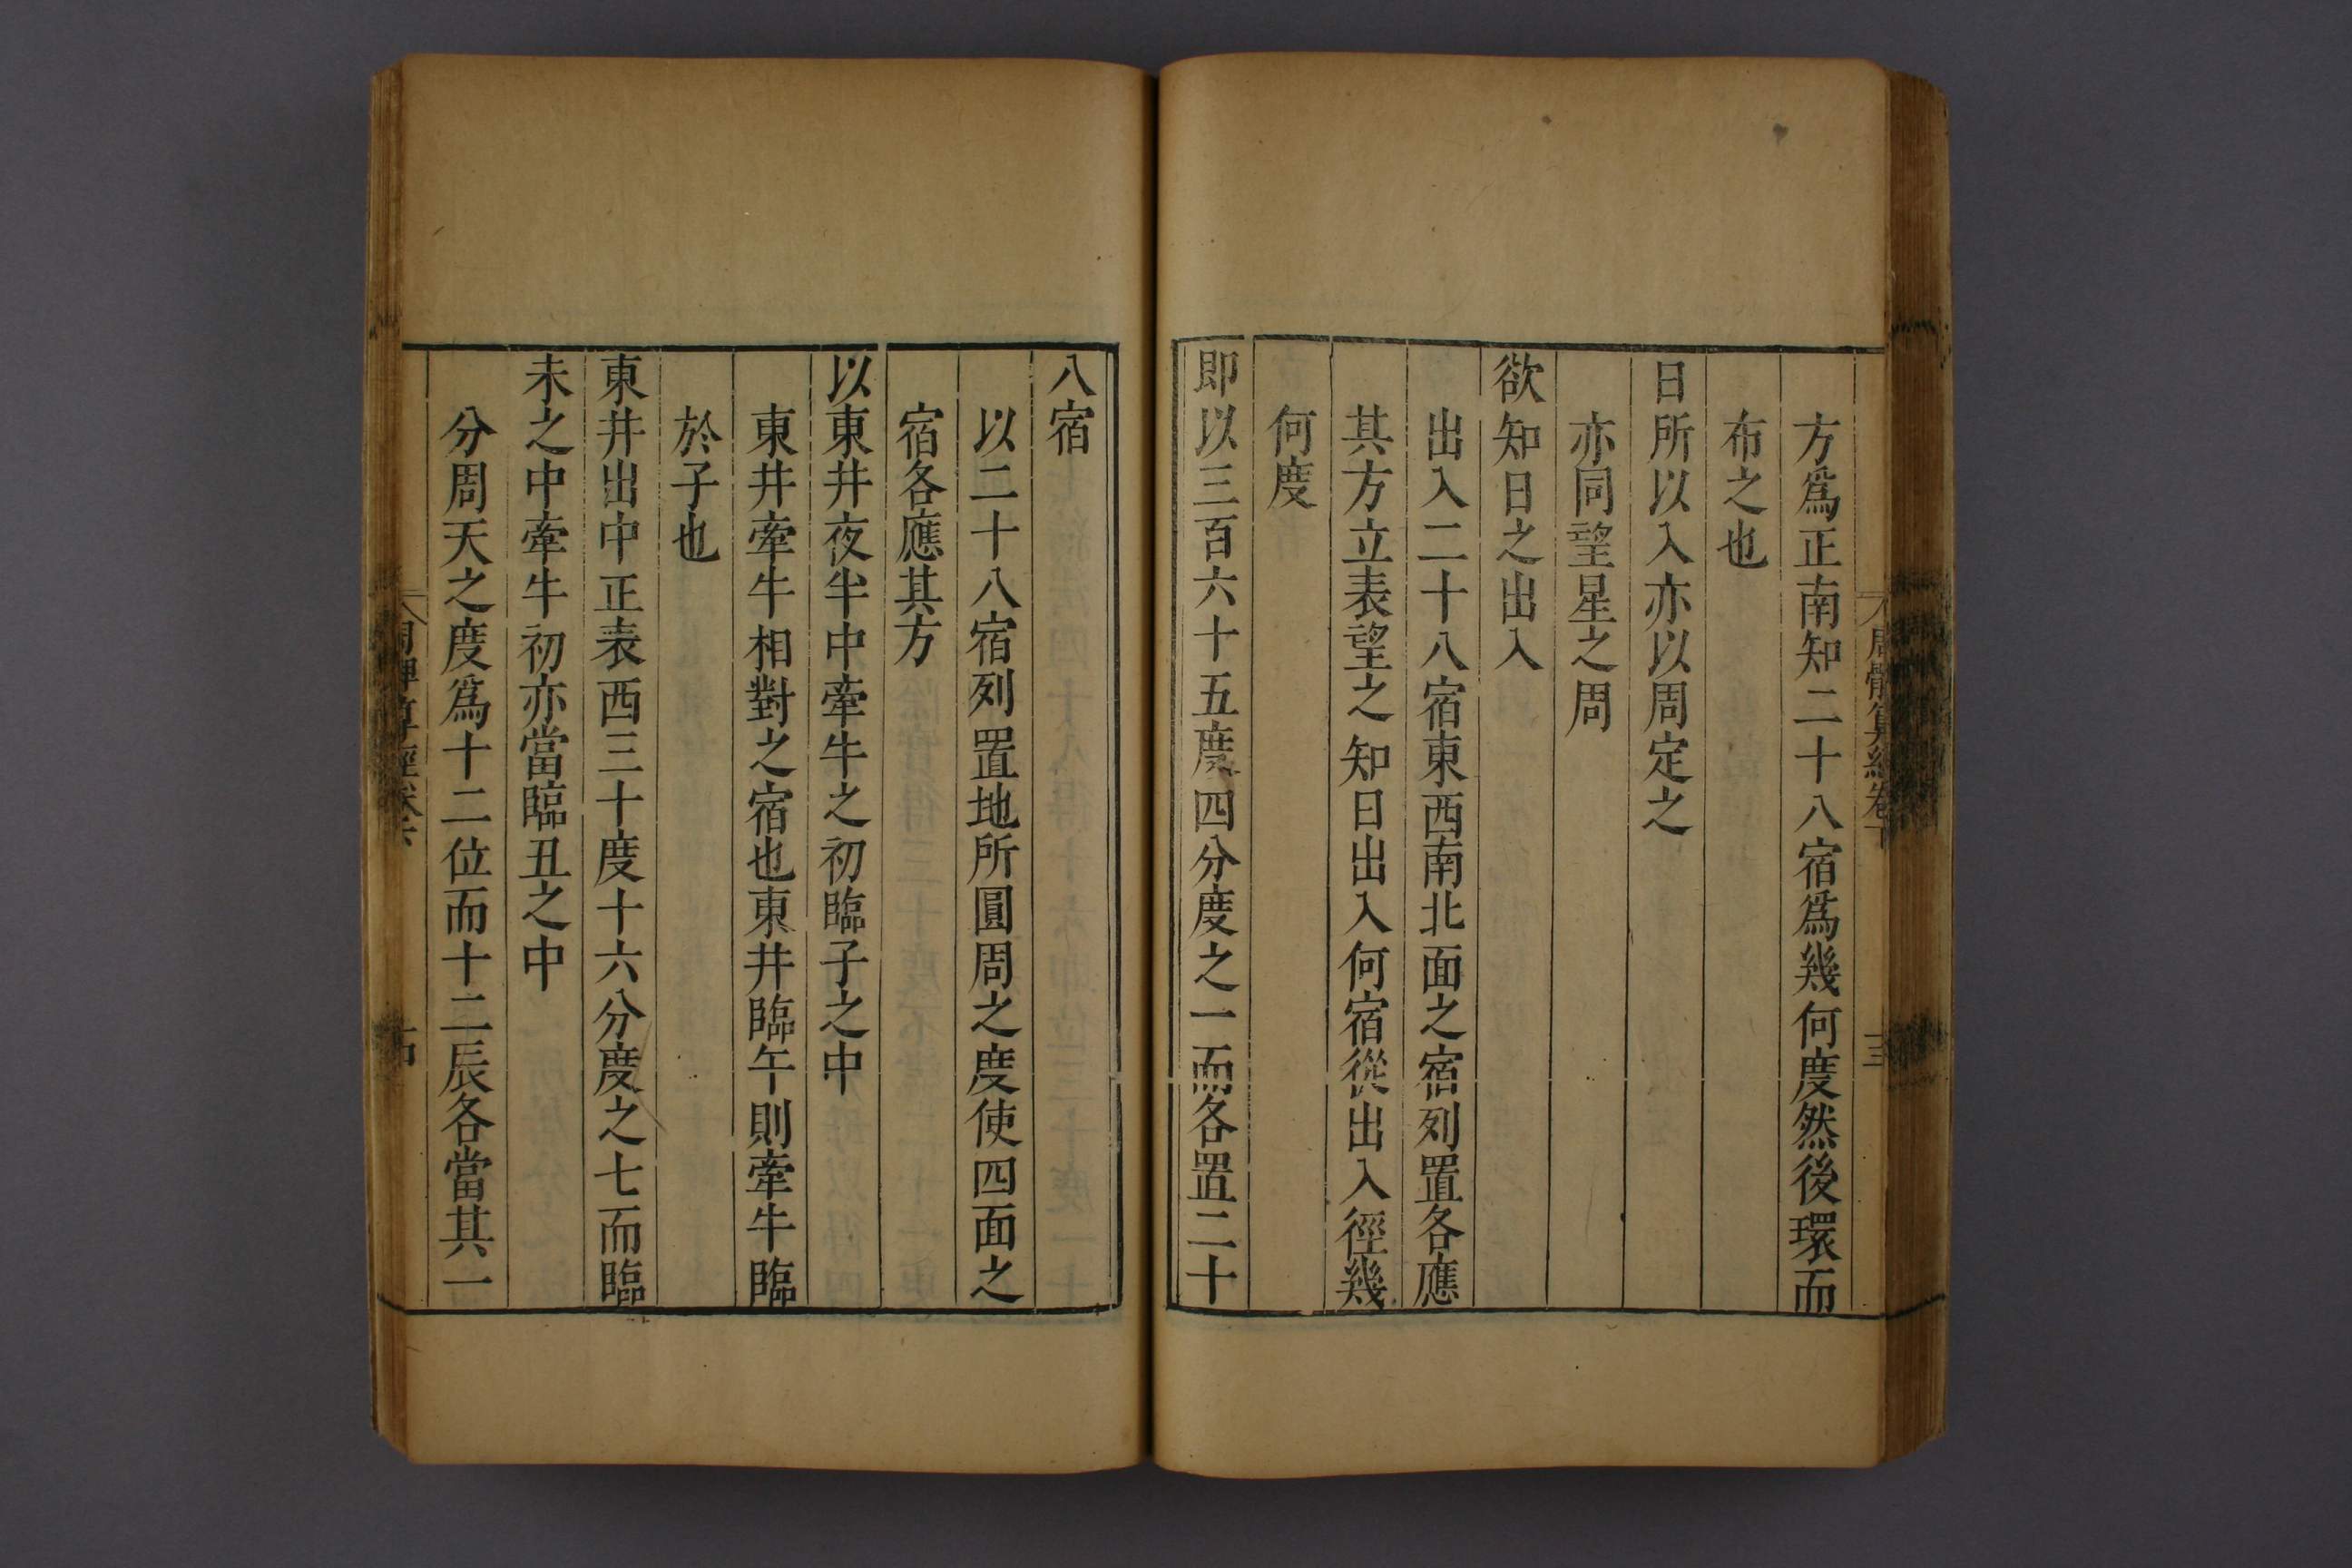 周髀算經卷下
十三
方爲正南知二十八宿爲幾何度然後環而
布之也
日所以入亦以周定之
亦同望星之周
欲知日之出入
出入二十八宿東西南北面之宿列置各應
其方立表望之知日出入何宿從出入徑幾
何度
即以三百六十五度四分度之一而各置二十
八宿
以二十八宿列置地所圓周之度使四面之
宿各應其方
以東井夜半中牽牛之初臨子之中
東井牽牛相對之宿也東井臨午則牽牛臨
於子也
東井出中正表西三十度十六分度之七而臨
未之中牽牛初亦當臨丑之中
分周天之度爲十二位而十二辰各當其一
周髀算經卷下